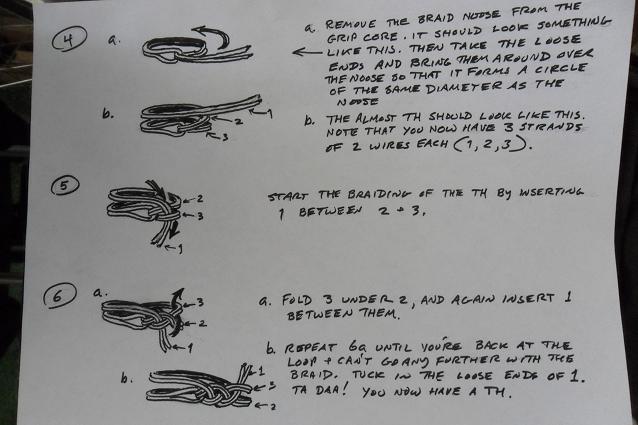 4 a. a. REMOVE THE BRAID NOOSE FROM THE
GRIP CORE. IT SHOULD LOOK SOMETHING
LIKE THIS. THEN TAKE THE LOOSE
ENDS AND BRING THEM AROUND OVER
THE NOOSE SO THAT IT FORMS A CIRCLE
OF THE SAME DIAMETER AS THE
NOOSE
b. 1 2 3
b. THE ALMOST TH SHOULD LOOK LIKE THIS.
NOTE THAT YOU NOW HAVE 3 STRANDS
OF 2 WIRES EACH (1, 2, 3).
5 2 3 1
START THE BRAIDING OF THE TH BY INSERTING
1 BETWEEN 2 + 3.
6 a. 3 2 1
a. FOLD 3 UNDER 2, AND AGAIN INSERT 1
BETWEEN THEM.
b. 1 3 2
b. REPEAT 6a UNTIL YOU'RE BACK AT THE
LOOP + CAN'T GO ANY FURTHER WITH THE
BRAID. TUCK IN THE LOOSE ENDS OF 1.
TA DAA! YOU NOW HAVE A TH.